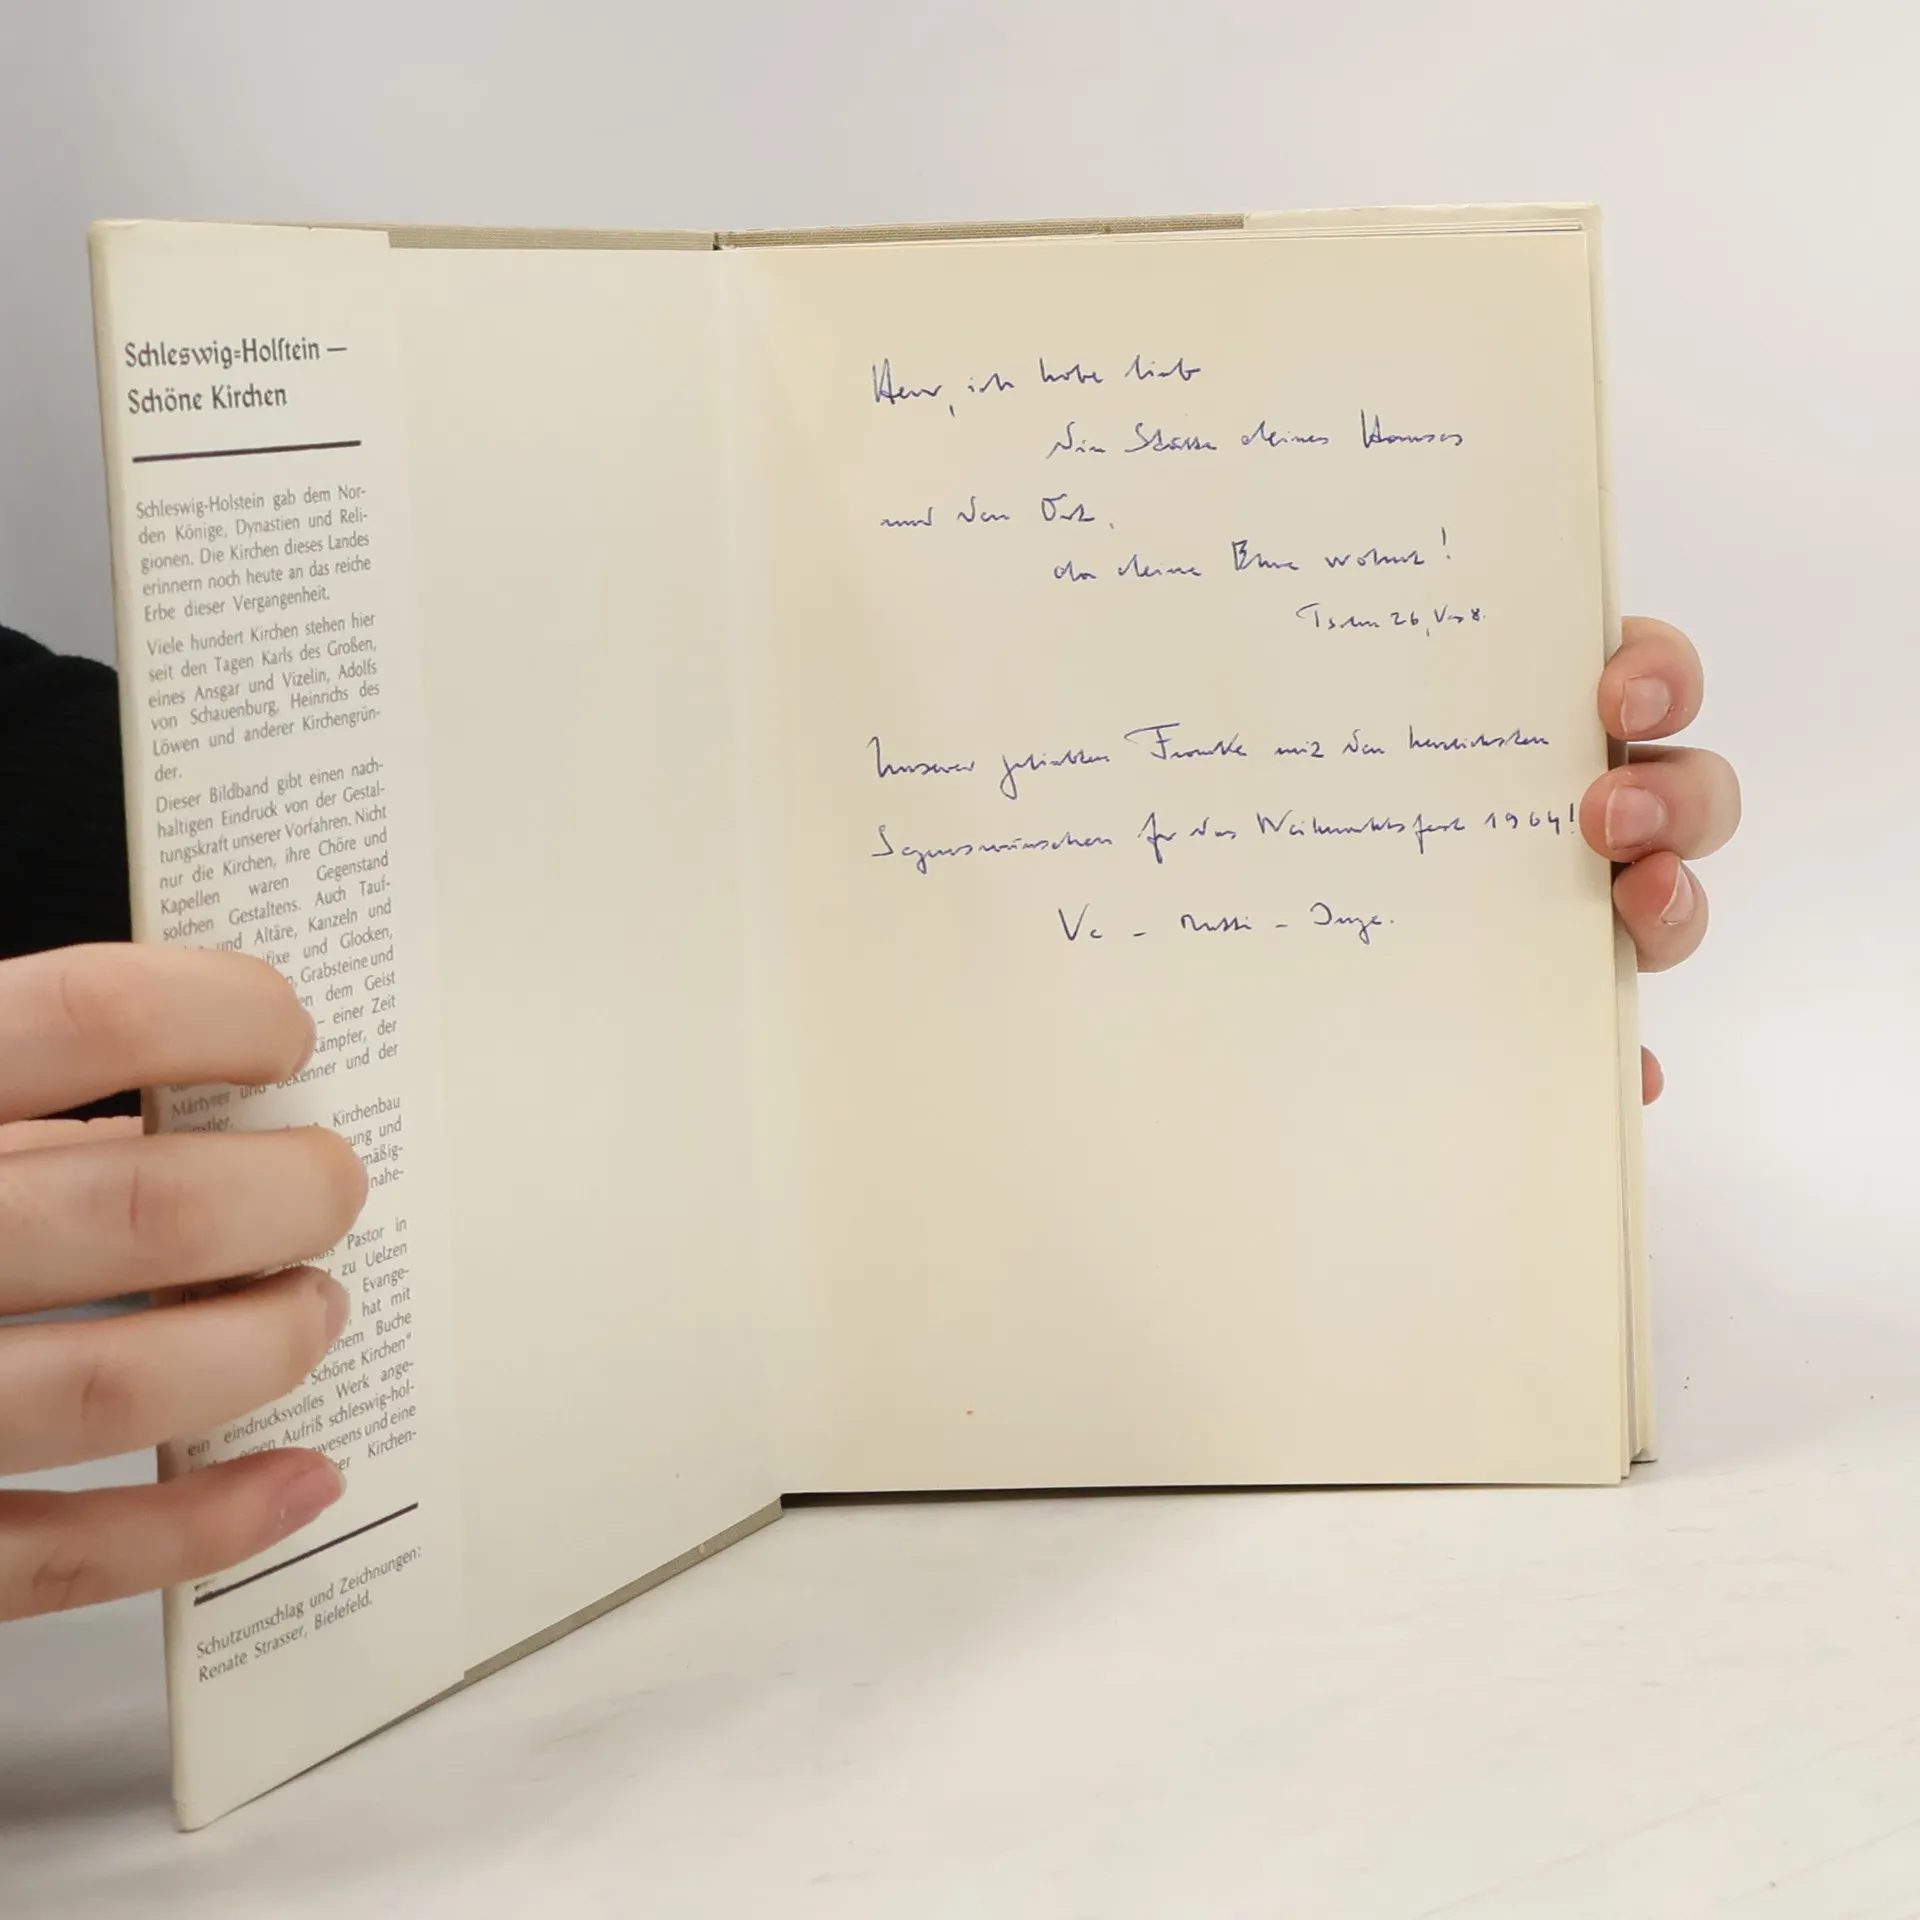 Schleswig-Holstein —
Schöne Kirchen
Schleswig-Holstein gab dem Nor-
den Könige, Dynastien und Reli-
gionen. Die Kirchen dieses Landes
erinnern noch heute an das reiche
Erbe dieser Vergangenheit.
Viele hundert Kirchen stehen hier
seit den Tagen Karls des Großen,
eines Ansgar und Vizelin, Adolfs
von Schauenburg, Heinrichs des
Löwen und anderer Kirchengrün-
der.
Dieser Bildband gibt einen nach-
haltigen Eindruck von der Gestal-
tungskraft unserer Vorfahren. Nicht
nur die Kirchen, ihre Chöre und
Kapellen waren Gegenstand
solchen Gestaltens. Auch Tauf-
und Altäre, Kanzeln und
und Glocken,
Grabsteine und
dem Geist
– einer Zeit
Kämpfer, der
Märtyrer und Bekenner und der
Kirchenbau
und
Pastor in
zu Uelzen
Evange-
hat mit
Buche
Schöne Kirchen"
ein eindrucksvolles Werk ange-
Aufriß schleswig-hol-
und eine
Kirchen-
Schutzumschlag und Zeichnungen:
Renate Strasser, Bielefeld.
Herr, ich habe lieb
die Stätte deines Hauses
und den Ort,
da deine Ehre wohnt!
Psalm 26, Vers 8.
Unserer geliebten Frauke mit den herzlichsten
Segenswünschen für das Weihnachtsfest 1964!
Va – Mutti – Inge.